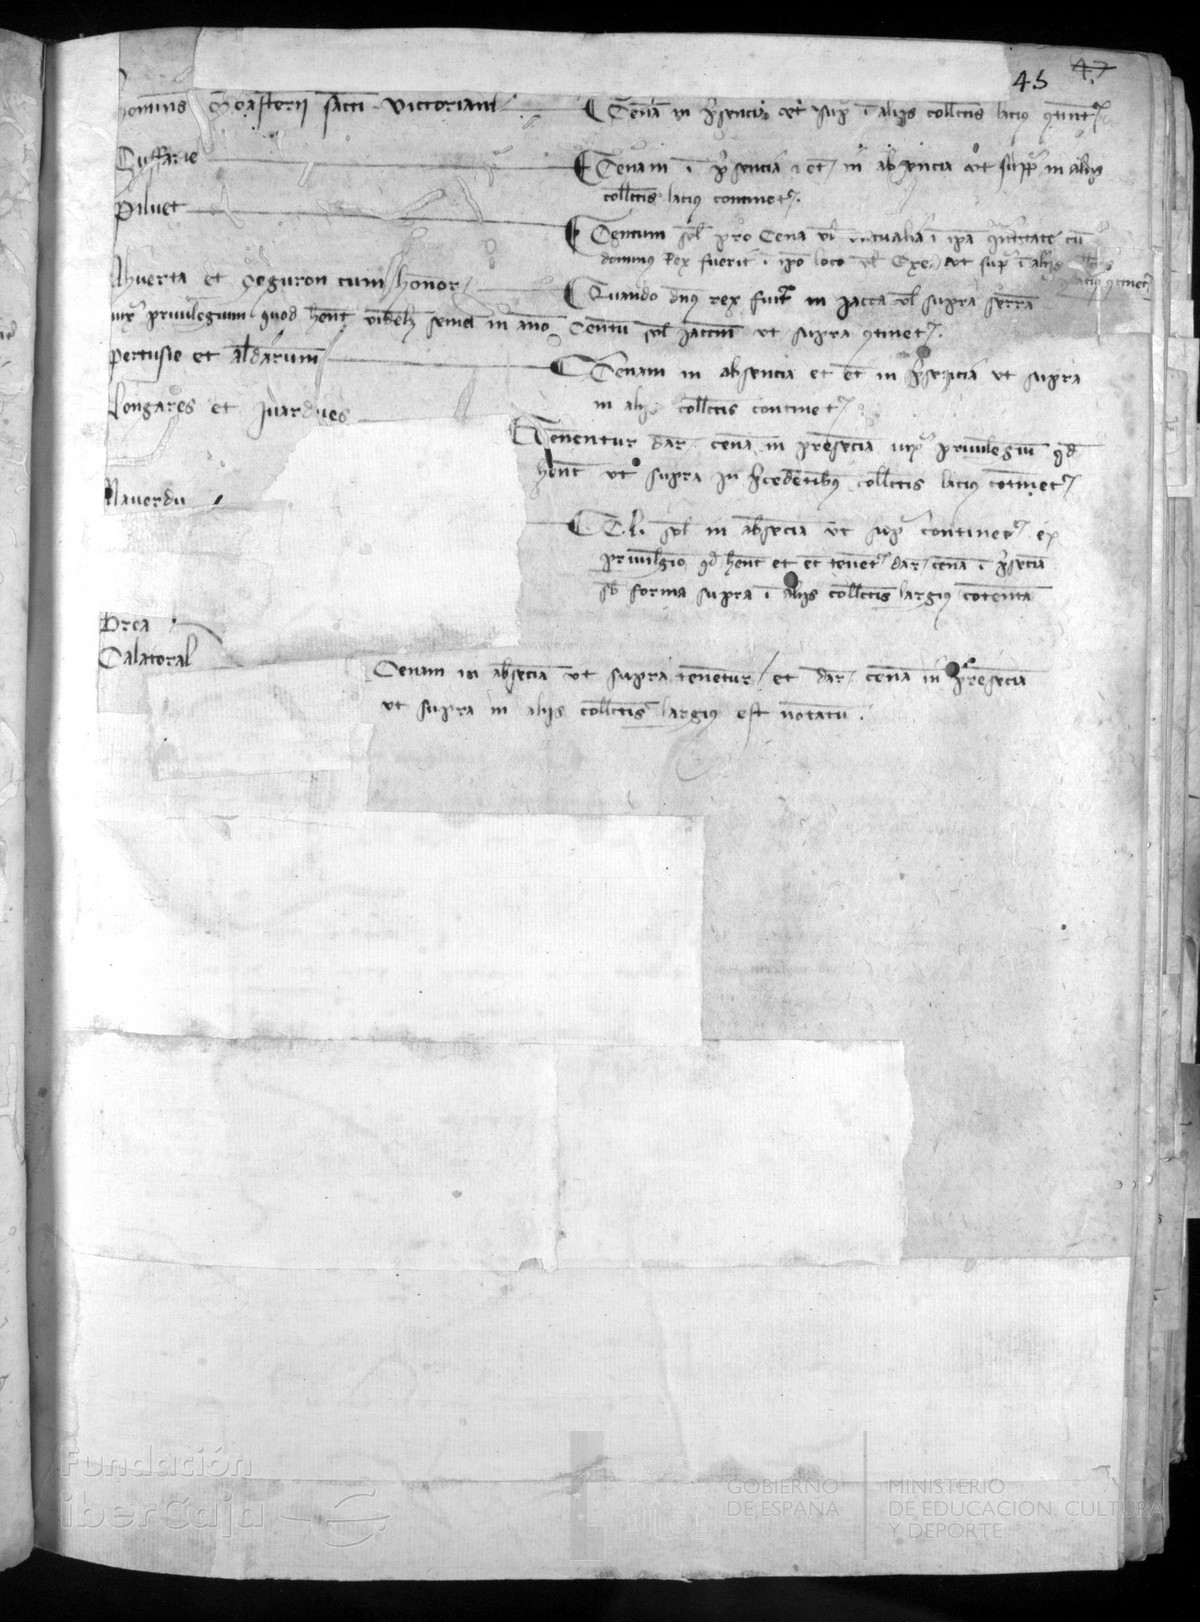 45 47
homines Monasterii sancti victoriani Cenam in presencia ut sup in aliis collectis lacius continetur
Cenam in presencia et in absencia ut supra in aliis
collectis lacius continetur.
Piluet
Centum sol pro Cena vel victualia in ipa quantitate cum
dominus Rex fuerit in ipo loco ut sup in aliis
lacius continetur
Ahuerta et Seguron cum honor
Quando dns rex fuit in jacca vel supra serra
iuxta privilegium quod hent semel in ano Centu sol jaccen ut supra continetur.
pertusie et aldarum
Cenam in absencia et et in presencia ut supra
in aliis collectis continetur
Longares et
Tenentur dar cena in presencia iuxta privilegiu qd
hent ut supra in precedentibus collectis lacius continetur
Nauerdu
C.L. sol in absencia ut supra continetur ex
privilegio qd hent et et tenetur dar cena in presencia
sub forma supra in aliis collectis largius contenta
Brea
Calatoral
Cenam in absencia ut supra tenetur et dar cena in presencia
ut supra in aliis collectis largius est notatu.
Fundación
iberCaja
GOBIERNO
DE ESPAÑA
MINISTERIO
DE EDUCACIÓN, CULTURA
Y DEPORTE